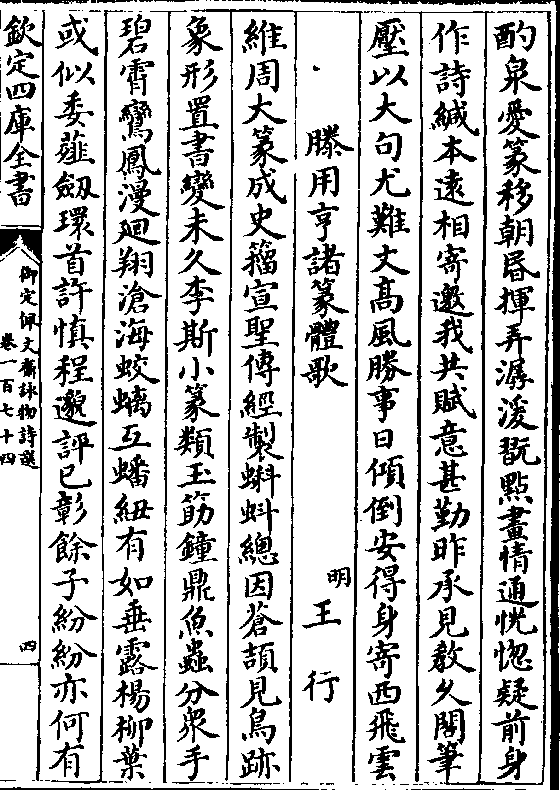 酌泉愛篆移朝昬揮弄潺湲翫點畫情通恍惚疑前身
作詩緘本遠相寄邀我共賦意甚勤昨承見教乆閣筆
壓以大句尤難丈髙風勝事日傾倒安得身寄西飛雲
滕用亨諸篆體歌
明 王行
維周大篆成史籀宣聖傳經製蝌蚪總因蒼頡見鳥跡
象形置書變未久李斯小篆類玉筋鐘鼎魚蟲分衆手
碧霄鸞鳳漫廻翔滄海蛟螭互蟠紐有如垂露楊柳葉
或似委薤劒環首許慎程邈評已彰餘子紛紛亦何有
欽定四庫全書
御定佩文齋詠物詩選
卷一百七十四
四